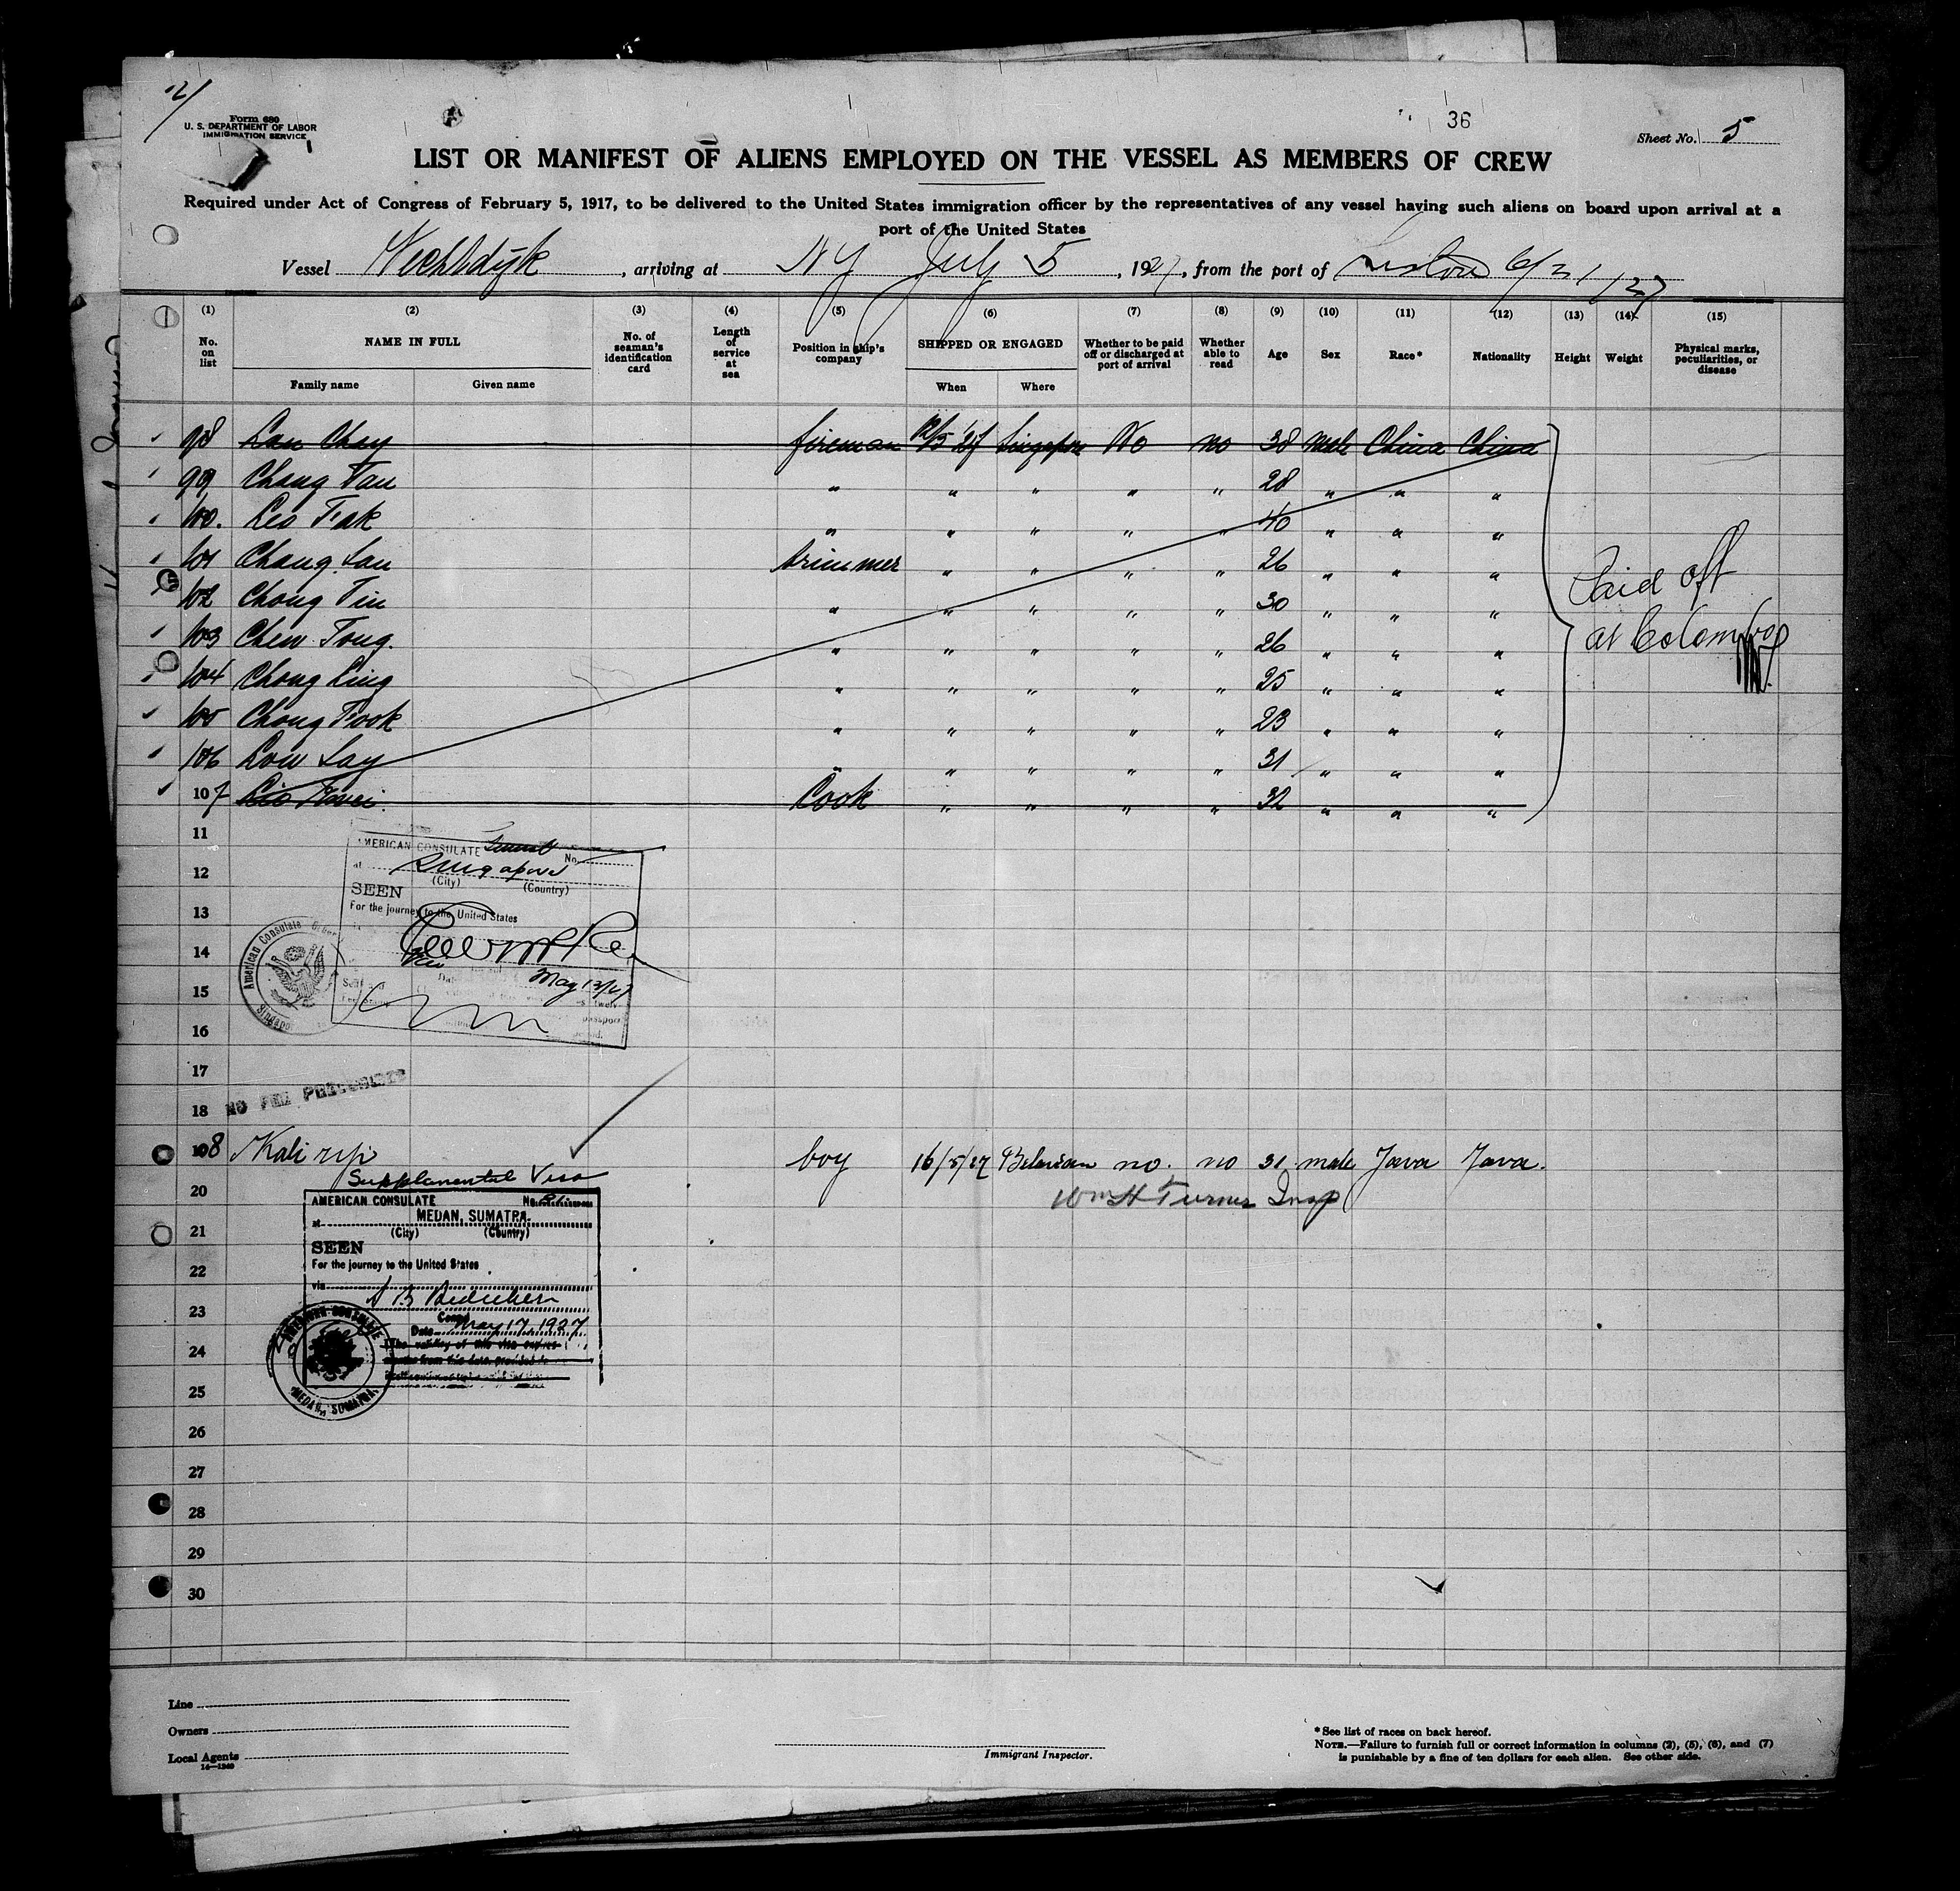 Form 680
U. S. DEPARTMENT OF LABOR
IMMIGRATION SERVICE
36
Sheet No. 5
LIST OR MANIFEST OF ALIENS EMPLOYED ON THE VESSEL AS MEMBERS OF CREW
Required under Act of Congress of February 5, 1917, to be delivered to the United States immigration officer by the representatives of any vessel having such aliens on board upon arrival at a
port of the United States
Vessel Vechtdyk, arriving at NY July 5, 1927, from the port of 6/21/27
(1) (2) (3) (4) (5) (6) (7) (8) (9) (10) (11) (12) (13) (14) (15)
No. on list NAME IN FULL No. of seaman's identification card Length of service at sea Position in ship's company SHIPPED OR ENGAGED Whether to be paid off or discharged at port of arrival Whether able to read Age Sex Race* Nationality Height Weight Physical marks, peculiarities, or disease
Family name Given name When Where
98 Lau Chay fireman Singapore No no 38 male China China
99 Chang Tau " " " " " 28 " " "
100. Leo Fak " " " " " 40 " " "
101 Chang Lau trimmer " " " " 26 " " "
102 Chong Tin " " " " " 30 " " "
103 Chew Tong. " " " " " 26 " " "
104 Chong King " " " " " 25 " " "
105 Chong Fook " " " " " 23 " " "
106 Low Lay " " " " " 31 " " "
107 Cook " " " " 32 " " "
Paid off
at Colombo
11
AMERICAN CONSULATE No.
12
at Singapore
(City) (Country)
SEEN
13
For the journey to the United States
14
May 13/27
15
16
American Consulate
17
18 NO FEE PRESCRIBED
108 boy 16/5/27 Belawan no. no 31 male Java Java.
Supplemental Visa
Wm H Turner Insp
20
AMERICAN CONSULATE No.
at MEDAN, SUMATRA.
21
(City) (Country)
SEEN
For the journey to the United States
22
via
23
Consul
Date May 17, 1927
24
The validity of this visa expires
months from this date, provided
25
MEDAN, SUMATRA
26
27
28
29
30
Line
Owners
Local Agents
14—1240
Immigrant Inspector.
*See list of races on back hereof.
NOTE.—Failure to furnish full or correct information in columns (2), (5), (6), and (7)
is punishable by a fine of ten dollars for each alien. See other side.